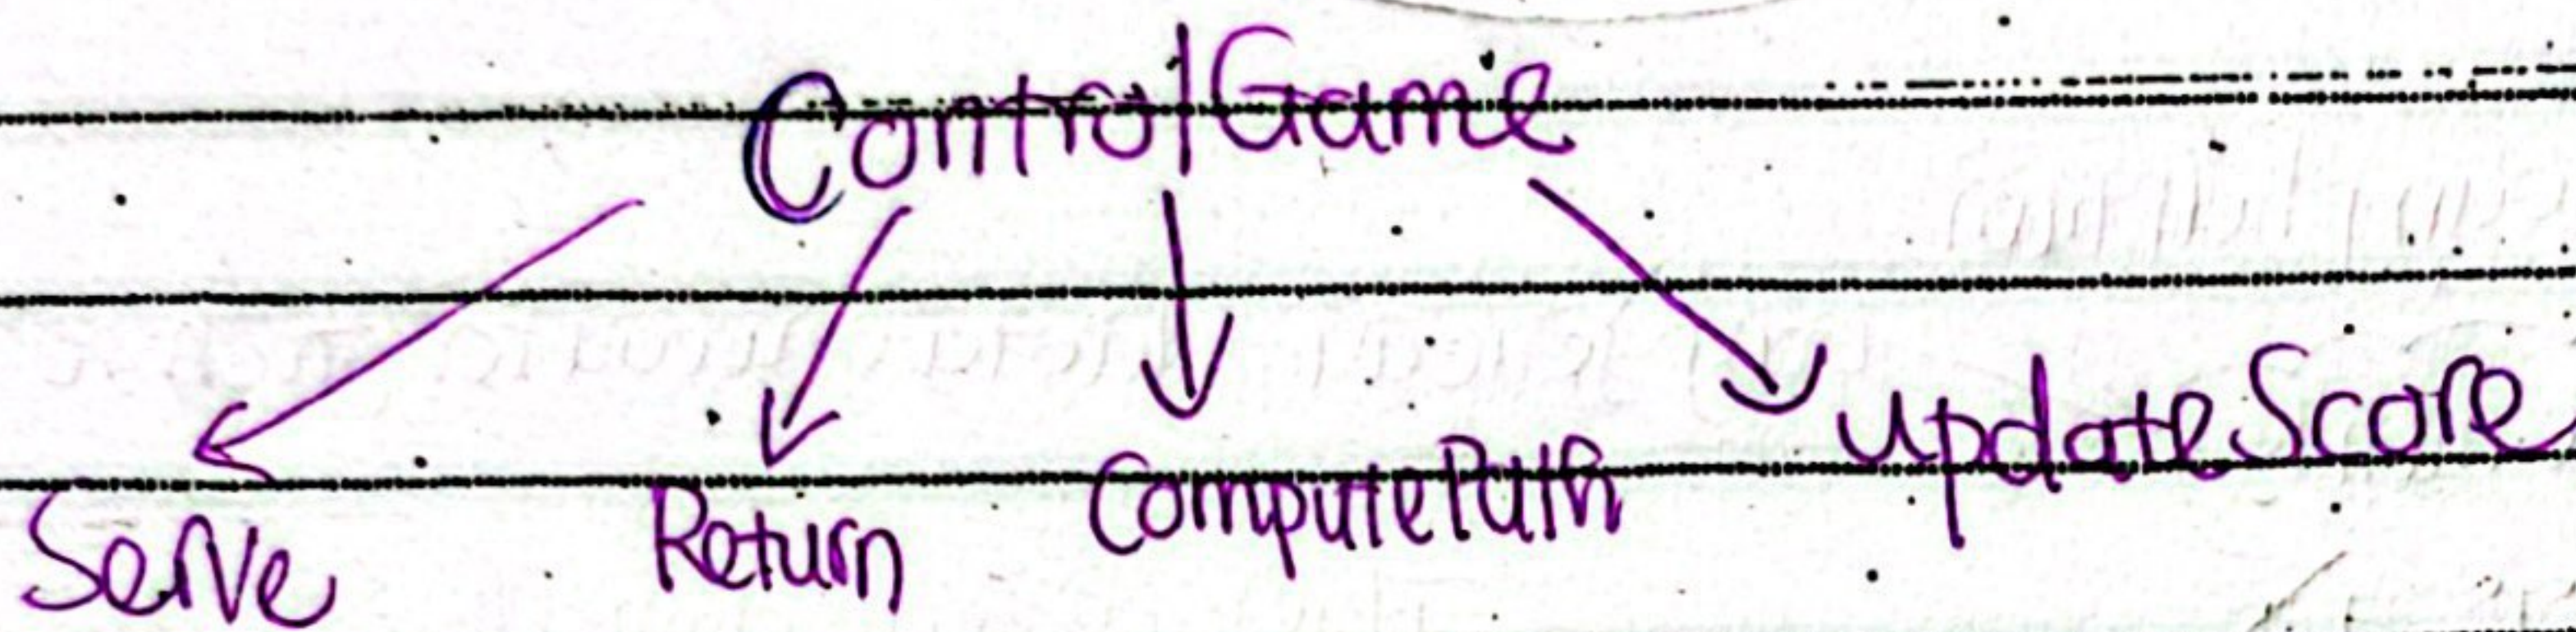 ControlGame
Serve Return ComputePath updateScore